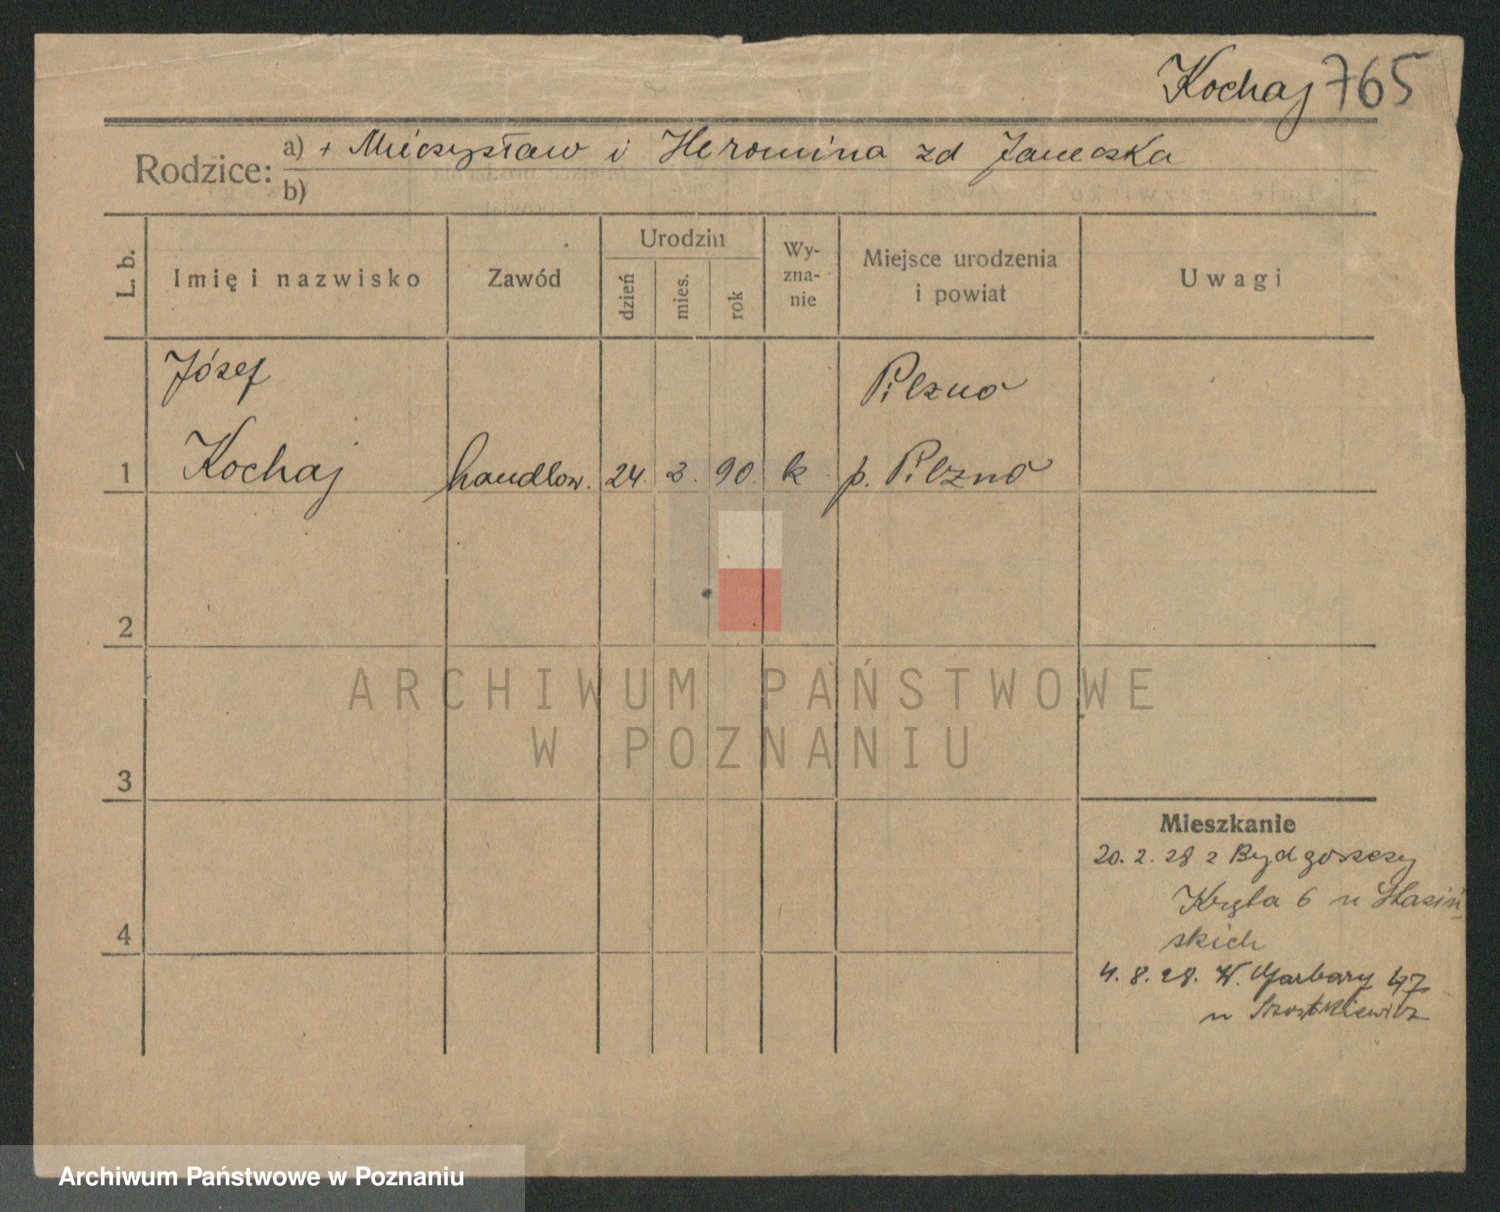 Kochaj 765
Rodzice: a) + Mieczysław i Heronina zd Janecska
b)
L. b.
Imię i nazwisko
Zawód
Urodzin
dzień
mies.
rok
Wy-
zna-
nie
Miejsce urodzenia
i powiat
Uwagi
Józef
Pilzno
1 Kochaj handlow. 24. 3. 90. k p. Pilzno
2
3
4
Mieszkanie
20. 2. 28 z Bydgoszczy
Kręta 6 u Stasiń-
skich
4. 8. 28. W. Garbary 47
u Szostkiewicz
ARCHIWUM PAŃSTWOWE
W POZNANIU
Archiwum Państwowe w Poznaniu